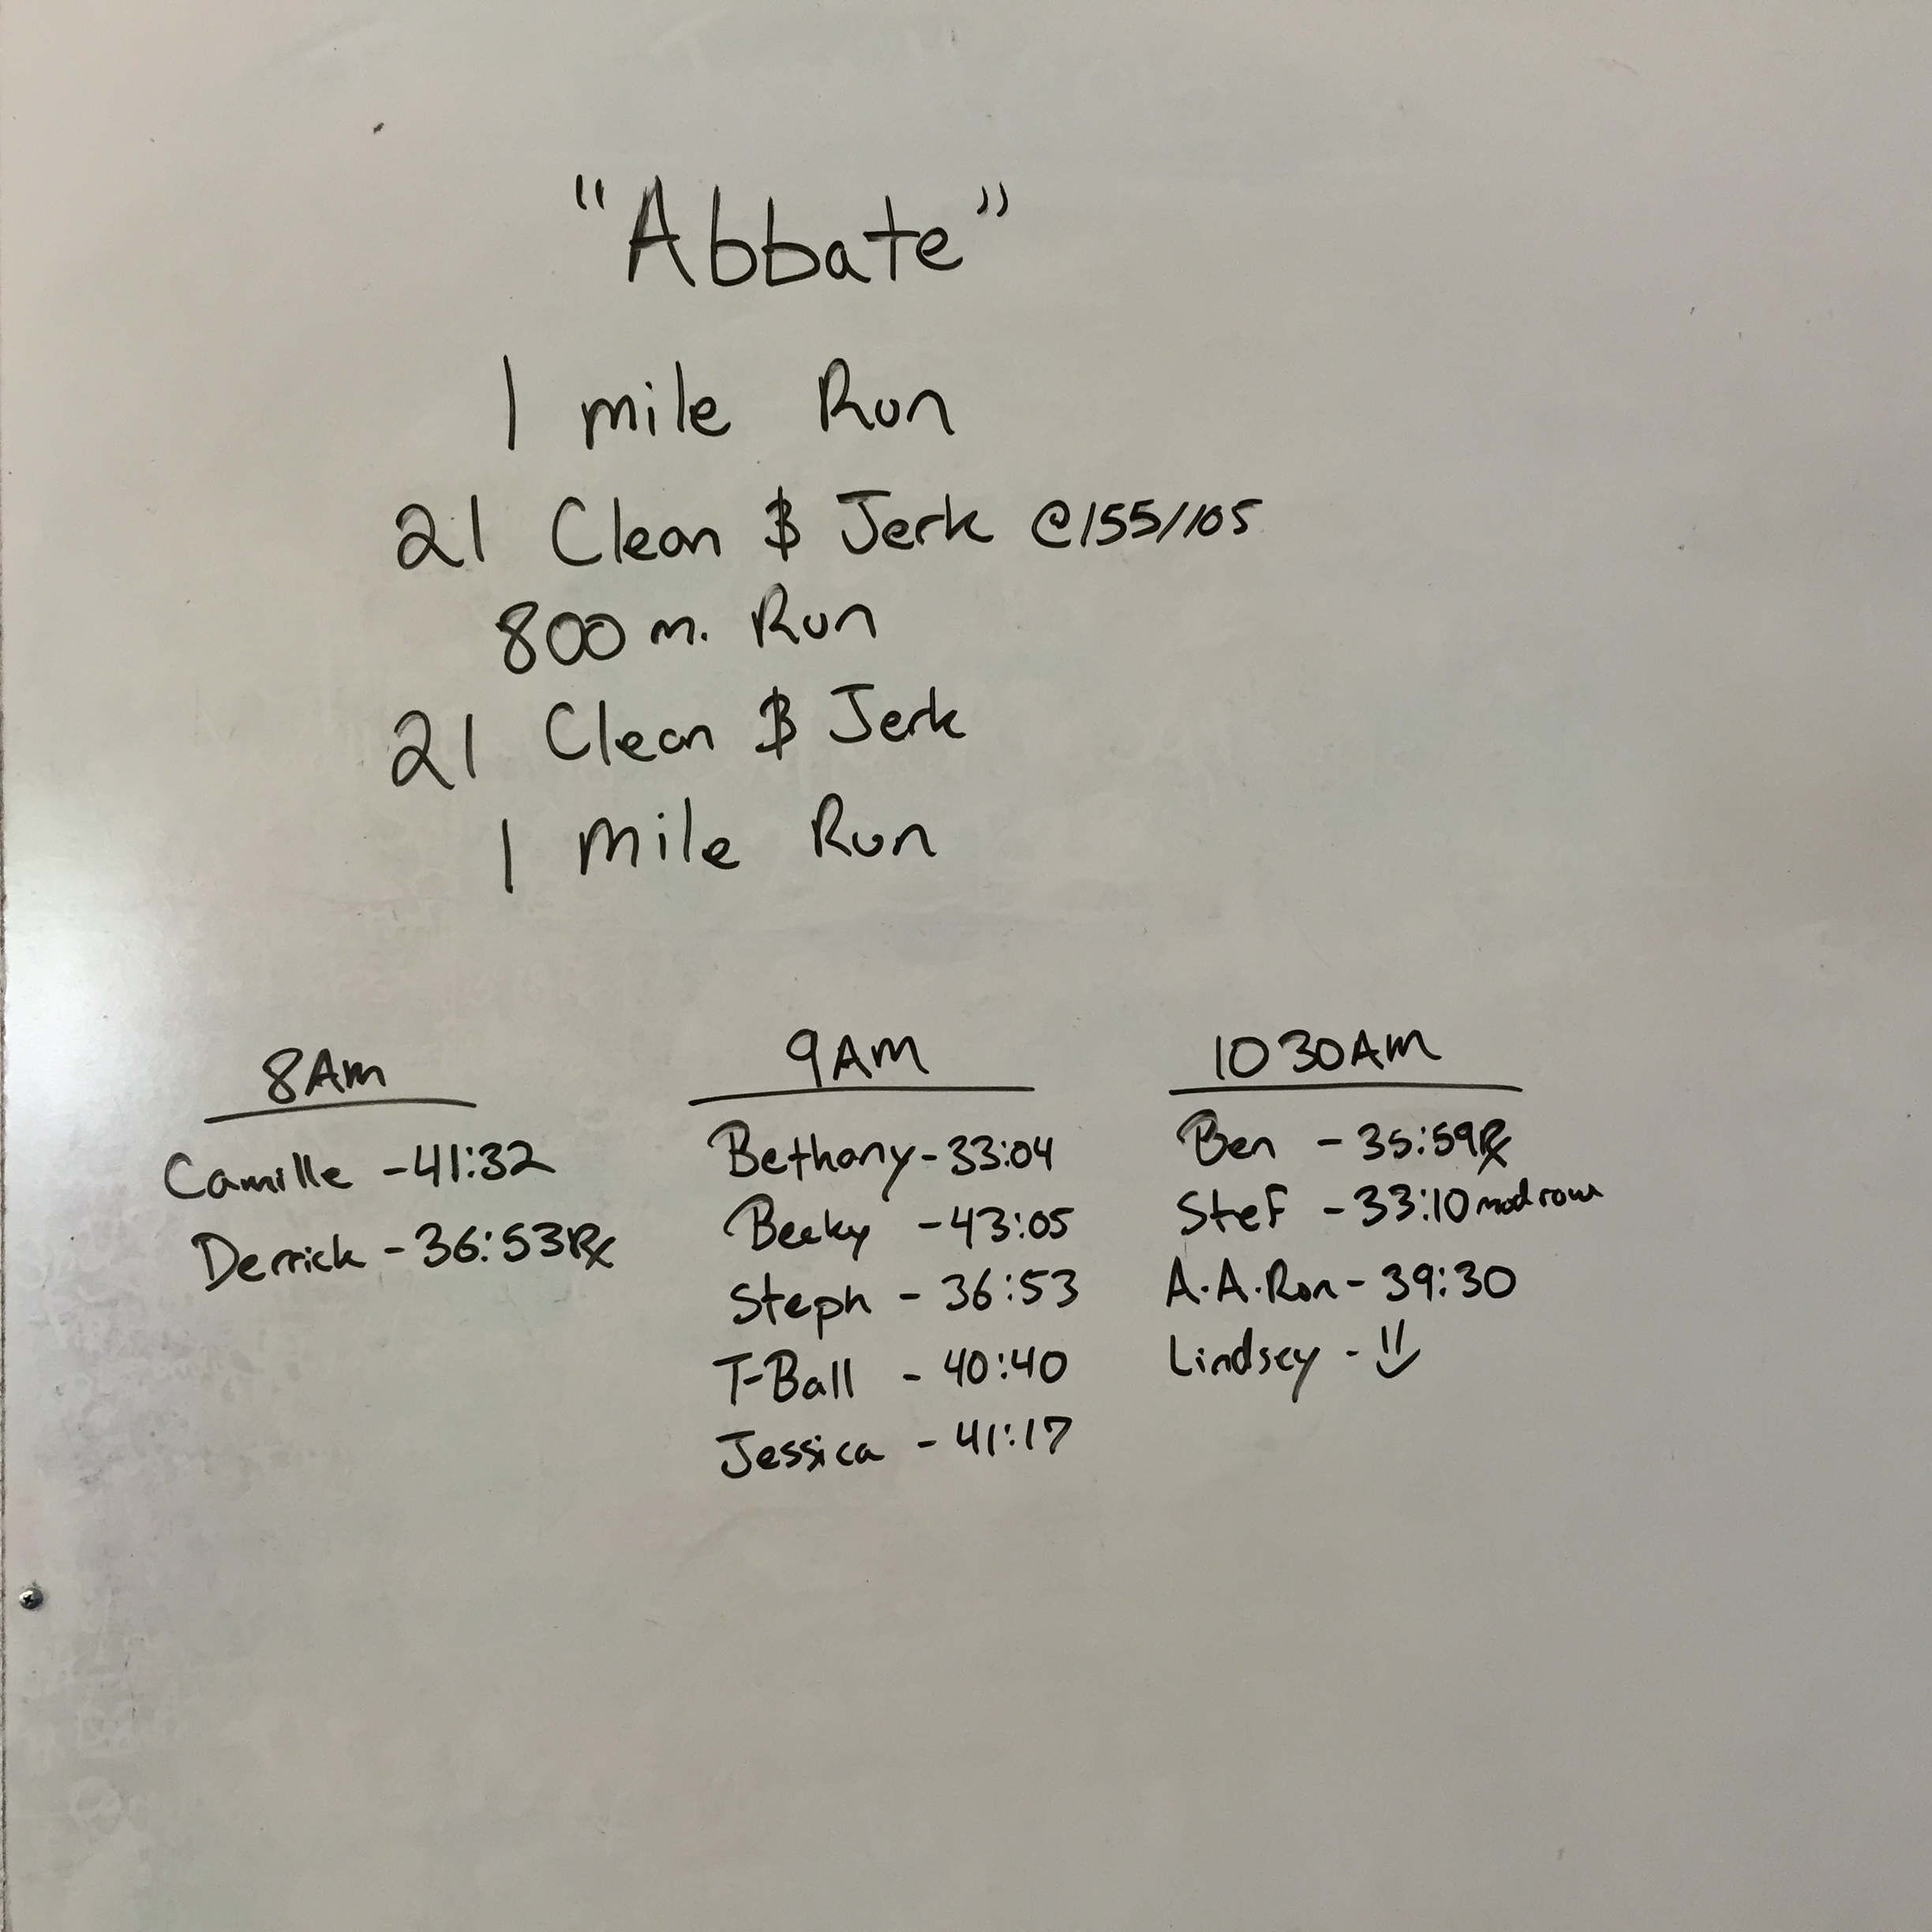 "Abbate"
1 mile Run
21 Clean & Jerk @155/105
800 m. Run
21 Clean & Jerk
1 Mile Run
8AM
Camille -41:32
Derrick - 36:53 Rx
9AM
Bethany - 33:04
Becky - 43:05
Steph - 36:53
T-Ball - 40:40
Jessica - 41:17
10 30AM
Ben - 35:59 Rx
Stef - 33:10 mod row
A.A.Ron - 39:30
Lindsey -